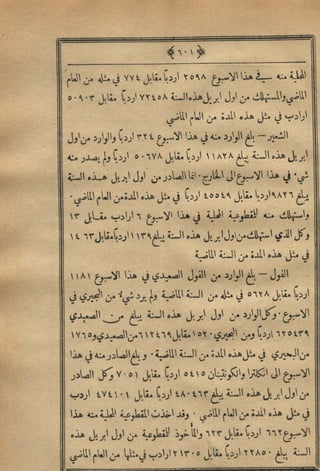 ﴿ ٦٠١ ﴾
المحلية منه في هذا الاسبوع ٢٥٩٨ اردبا مقابل ٧٧٤ في مثله من العام
الماضي والمستهلك من اول ابريل هذه السنة ٧٢٤٥٨ اردبا مقابل ٥٠٩٠٣
ارادب في مثل هذه المدة من العام الماضي
الشعير — بلغ الوارد منه في هذا الاسبوع ٣٢٤ اردبا والوارد من اول
ابريل هذه السنة يبلغ ١١٨٢٨ اردبا مقابل ٥٠٦٧٨ اردبا ولم يصدر منه
شيء في هذا الاسبوع الى الخارج. انما الصادر من اول ابريل هذه السنة
يبلغ ٩٨٢٦ اردبا مقابل ٤٥٥٤٩ اردبا في مثل هذه المدة من العام الماضي.
واستهلك منه للمقطوعية المحلية في هذا الاسبوع ٦ ارادب مقابل ١٣
وكل الذي استهلك من اول ابريل هذه السنة يبلغ ١١٣٩ اردبا مقابل ١٤٦٣
في مثل هذه المدة من السنة الماضية
الفول — بلغ الوارد من الفول الصعيدي في هذا الاسبوع ١١٨١
اردبا مقابل ٥٦٢٨ في مثله من السنة الماضية ولم يرد شيء من البحيري في
الاسبوع. وكل الوارد من اول ابريل هذه السنة يبلغ من الصعيدي
٦٢٥٤٣٩ اردبا ومن البحيري ١٥٢٠ مقابل ٦١٢٤٦٩ من الصعيدي و١٧٦٥
من البحيري في مثل هذه المدة من السنة الماضية. وبلغ الصادر منه في هذا
الاسبوع الى انكلترا والكونتينان ٥٤١٥ اردبا مقابل ٧٠٥١ وكل الصادر
من اول ابريل هذه السنة يبلغ ٤٨٠٤٦٣ اردبا مقابل ٤٧٤١٠١ اردب
في مثل هذه المدة من العام الماضي. وقد اخذت المقطوعية المحلية منه هذا
الاسبوع ٦٦٢ اردبا مقابل ٦٢٣ والمأخوذ للمقطوعية من اول ابريل هذه
السنة يبلغ ٢٢٨٥٠ اردبا مقابل ٢١٣٠٥ ارادب في مثلها من العام الماضي